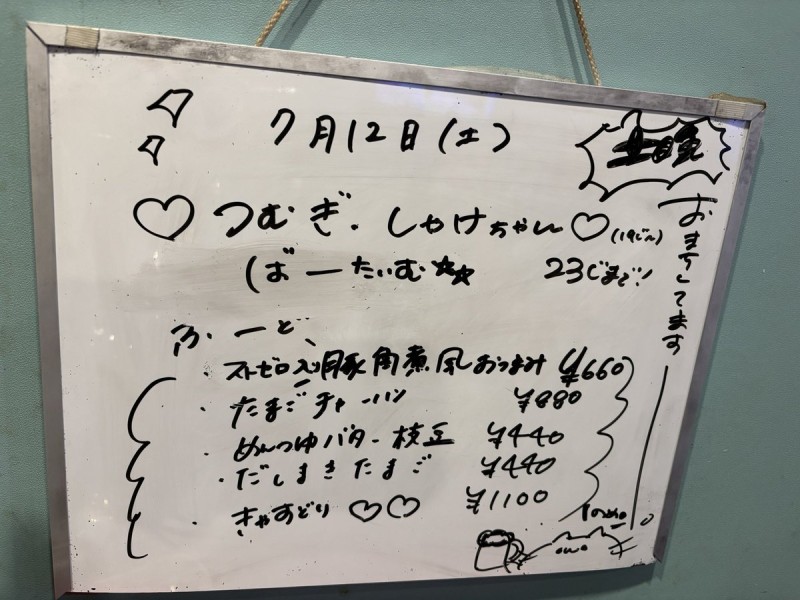 7月12日(土)
♡つむぎ.しゃけちゃん♡(19じ〜)
ばーたいむ☆☆ 23じまで!
おまちしてます
ふーど
・ストゼロ入り豚角煮風おつまみ ¥660
・たまごチャーハン ¥880
・めんつゆバター枝豆 ¥440
・だしまきたまご ¥440
・きゃすどり♡♡ ¥1100